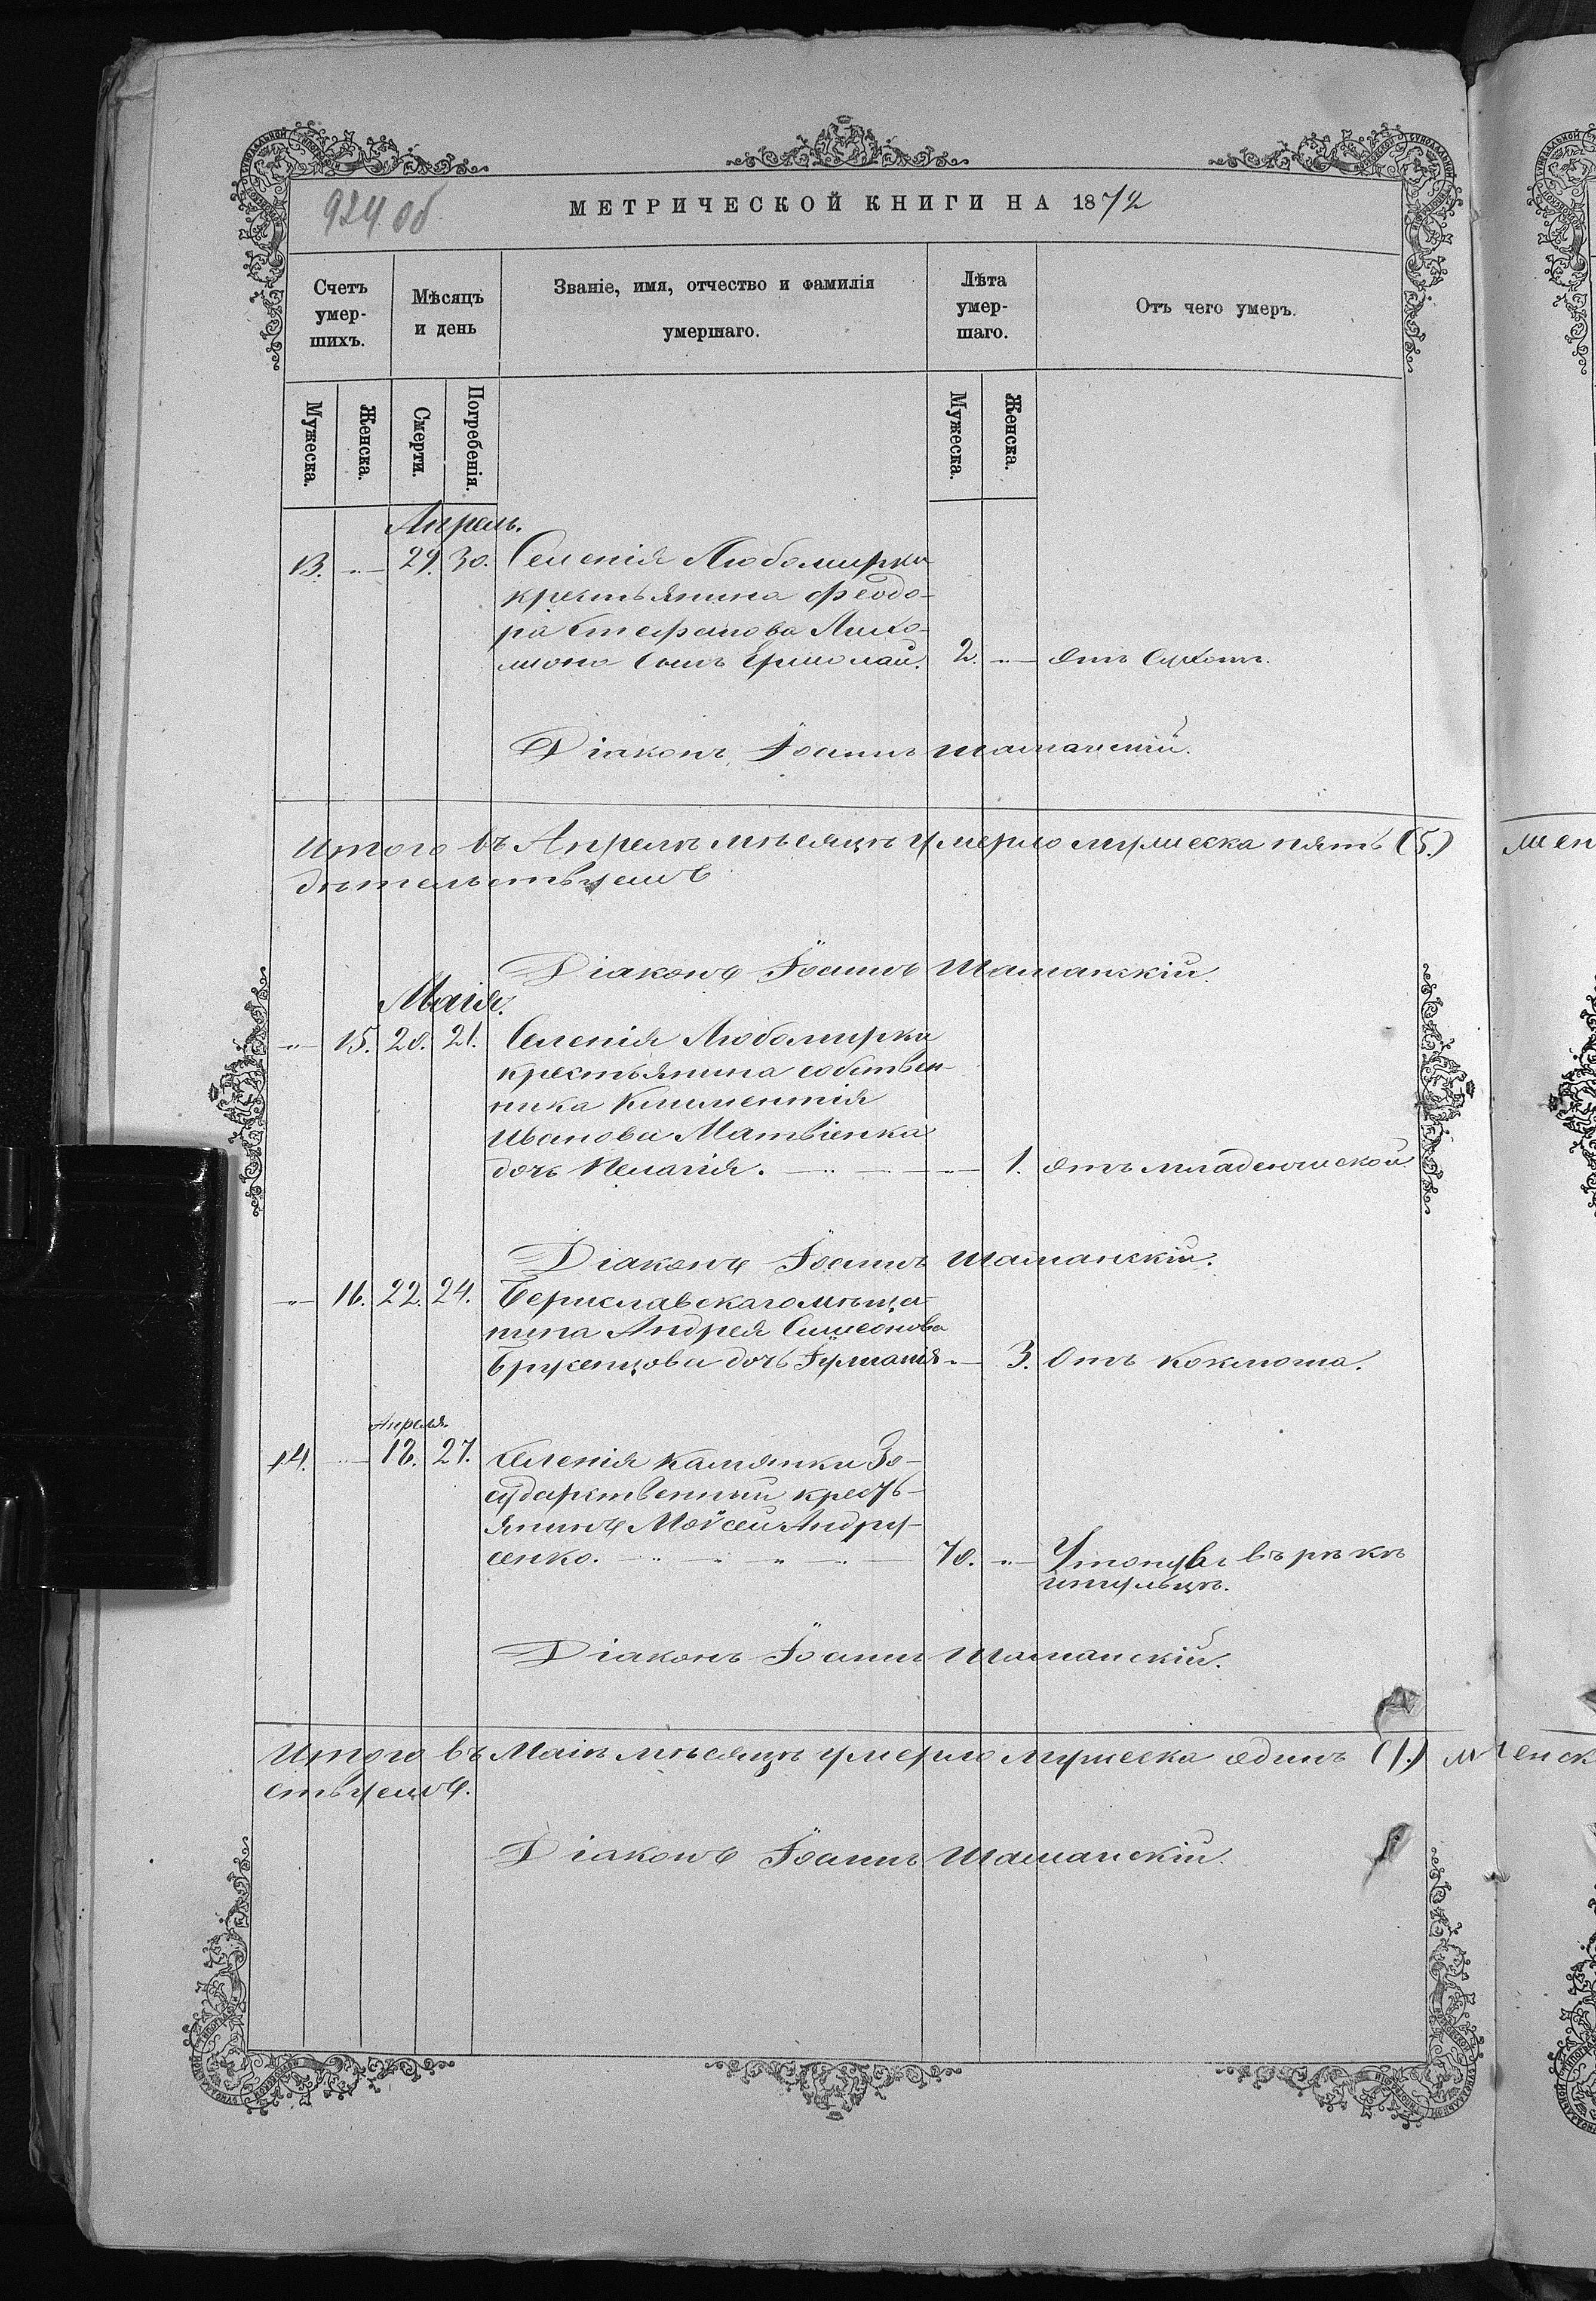 924 об
МЕТРИЧЕСКОЙ КНИГИ НА 1872
Счетъ умер-шихъ.
Мѣсяцъ и день
Званіе, имя, отчество и фамилія умершаго.
Лѣта умер-шаго.
Отъ чего умеръ.
Мужеска. Женска. Смерти. Погребенія. Мужеска. Женска.
Апрель.
13. „ 29. 30. Селенія Любомирки
крестьянина Феодо-
ра Стефанова
сынъ Ермолай. 2. „ отъ сухотъ.
Діаконъ Іоаннъ Шаманскій.
Итого въ Апрелѣ мѣсяцѣ умерло мужеска пять (5.) жен
дѣтельствуемъ
Діаконъ Іоаннъ Шаманскій.
Маія.
„ 15. 20. 21. Селенія Любомирки
крестьянина собствен-
ника Климентія
Иванова Матвіенка
дочь Пелагія. „ 1. отъ младенческой
Діаконъ Іоаннъ Шаманскій.
„ 16. 22. 24. Бериславскаго мѣща-
нина Андрея Симеонова
дочь Іуліанія „ 3. Отъ коклюша.
Апреля.
14. „ 18. 27. Селенія Камянки Го-
сударственный кресть-
янинъ Мойсей Андру-
сенко. „ 70. „ Утонувъ въ рѣкѣ
ингульцѣ.
Діаконъ Іоаннъ Шаманскій.
Итого въ Маіѣ мѣсяцѣ умерло мужеска одинъ (1.) женск
ствуемъ.
Діаконъ Іоаннъ Шаманскій.